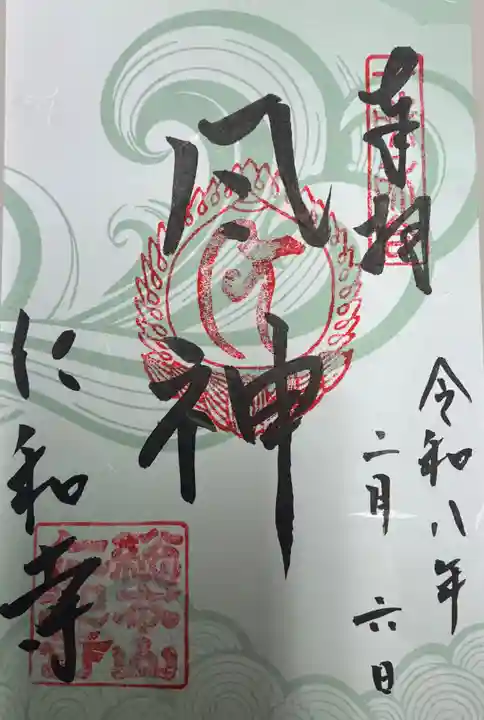 奉拝
令和八年
二月 六日
風神
仁和寺